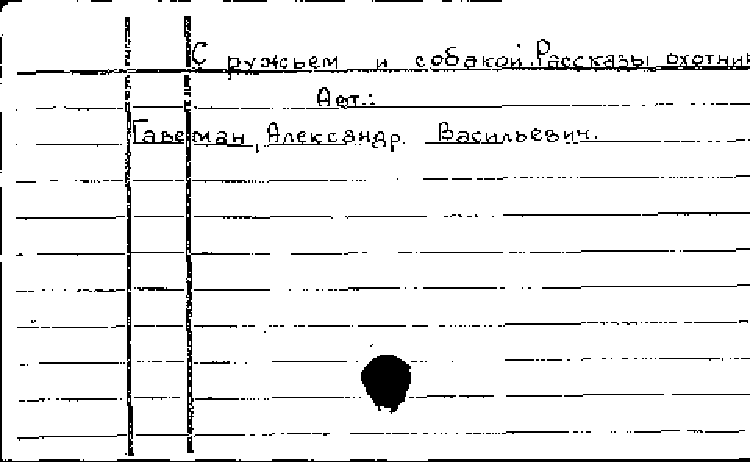 С ружьем и собакой. Рассказы охотник
Авт.:
Гавеман, Александр Васильевич.